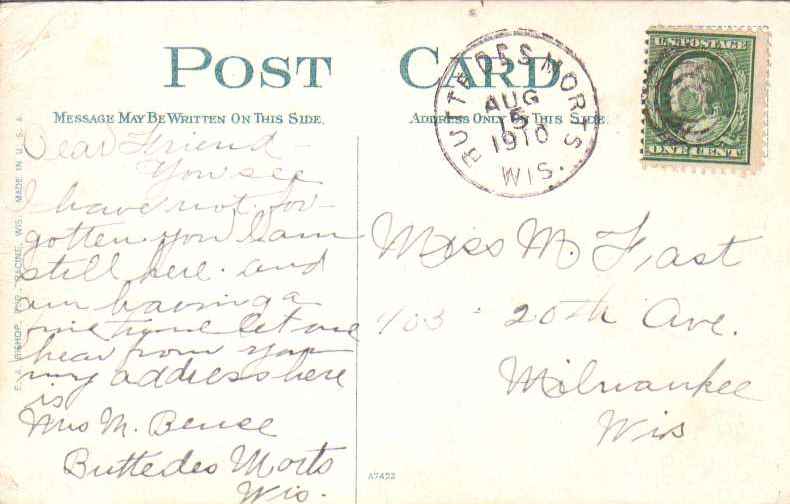 POST CARD
MESSAGE MAY BE WRITTEN ON THIS SIDE.
ADDRESS ONLY ON THIS SIDE
BUTTE DES MORTS
AUG
15
1910
WIS.
U.S. POSTAGE
ONE CENT
Dear Friend –
You see
I have not for-
gotten you I am
still here. and
am having a
fine time let me
hear from you
my address here
is
Mrs M. Beuse
Butte des Morts
Wis.
Miss M. Fast
403 - 20th Ave.
Milwaukee
Wis
A7422
E. A. BISHOP, PUB., RACINE, WIS. MADE IN U. S. A.